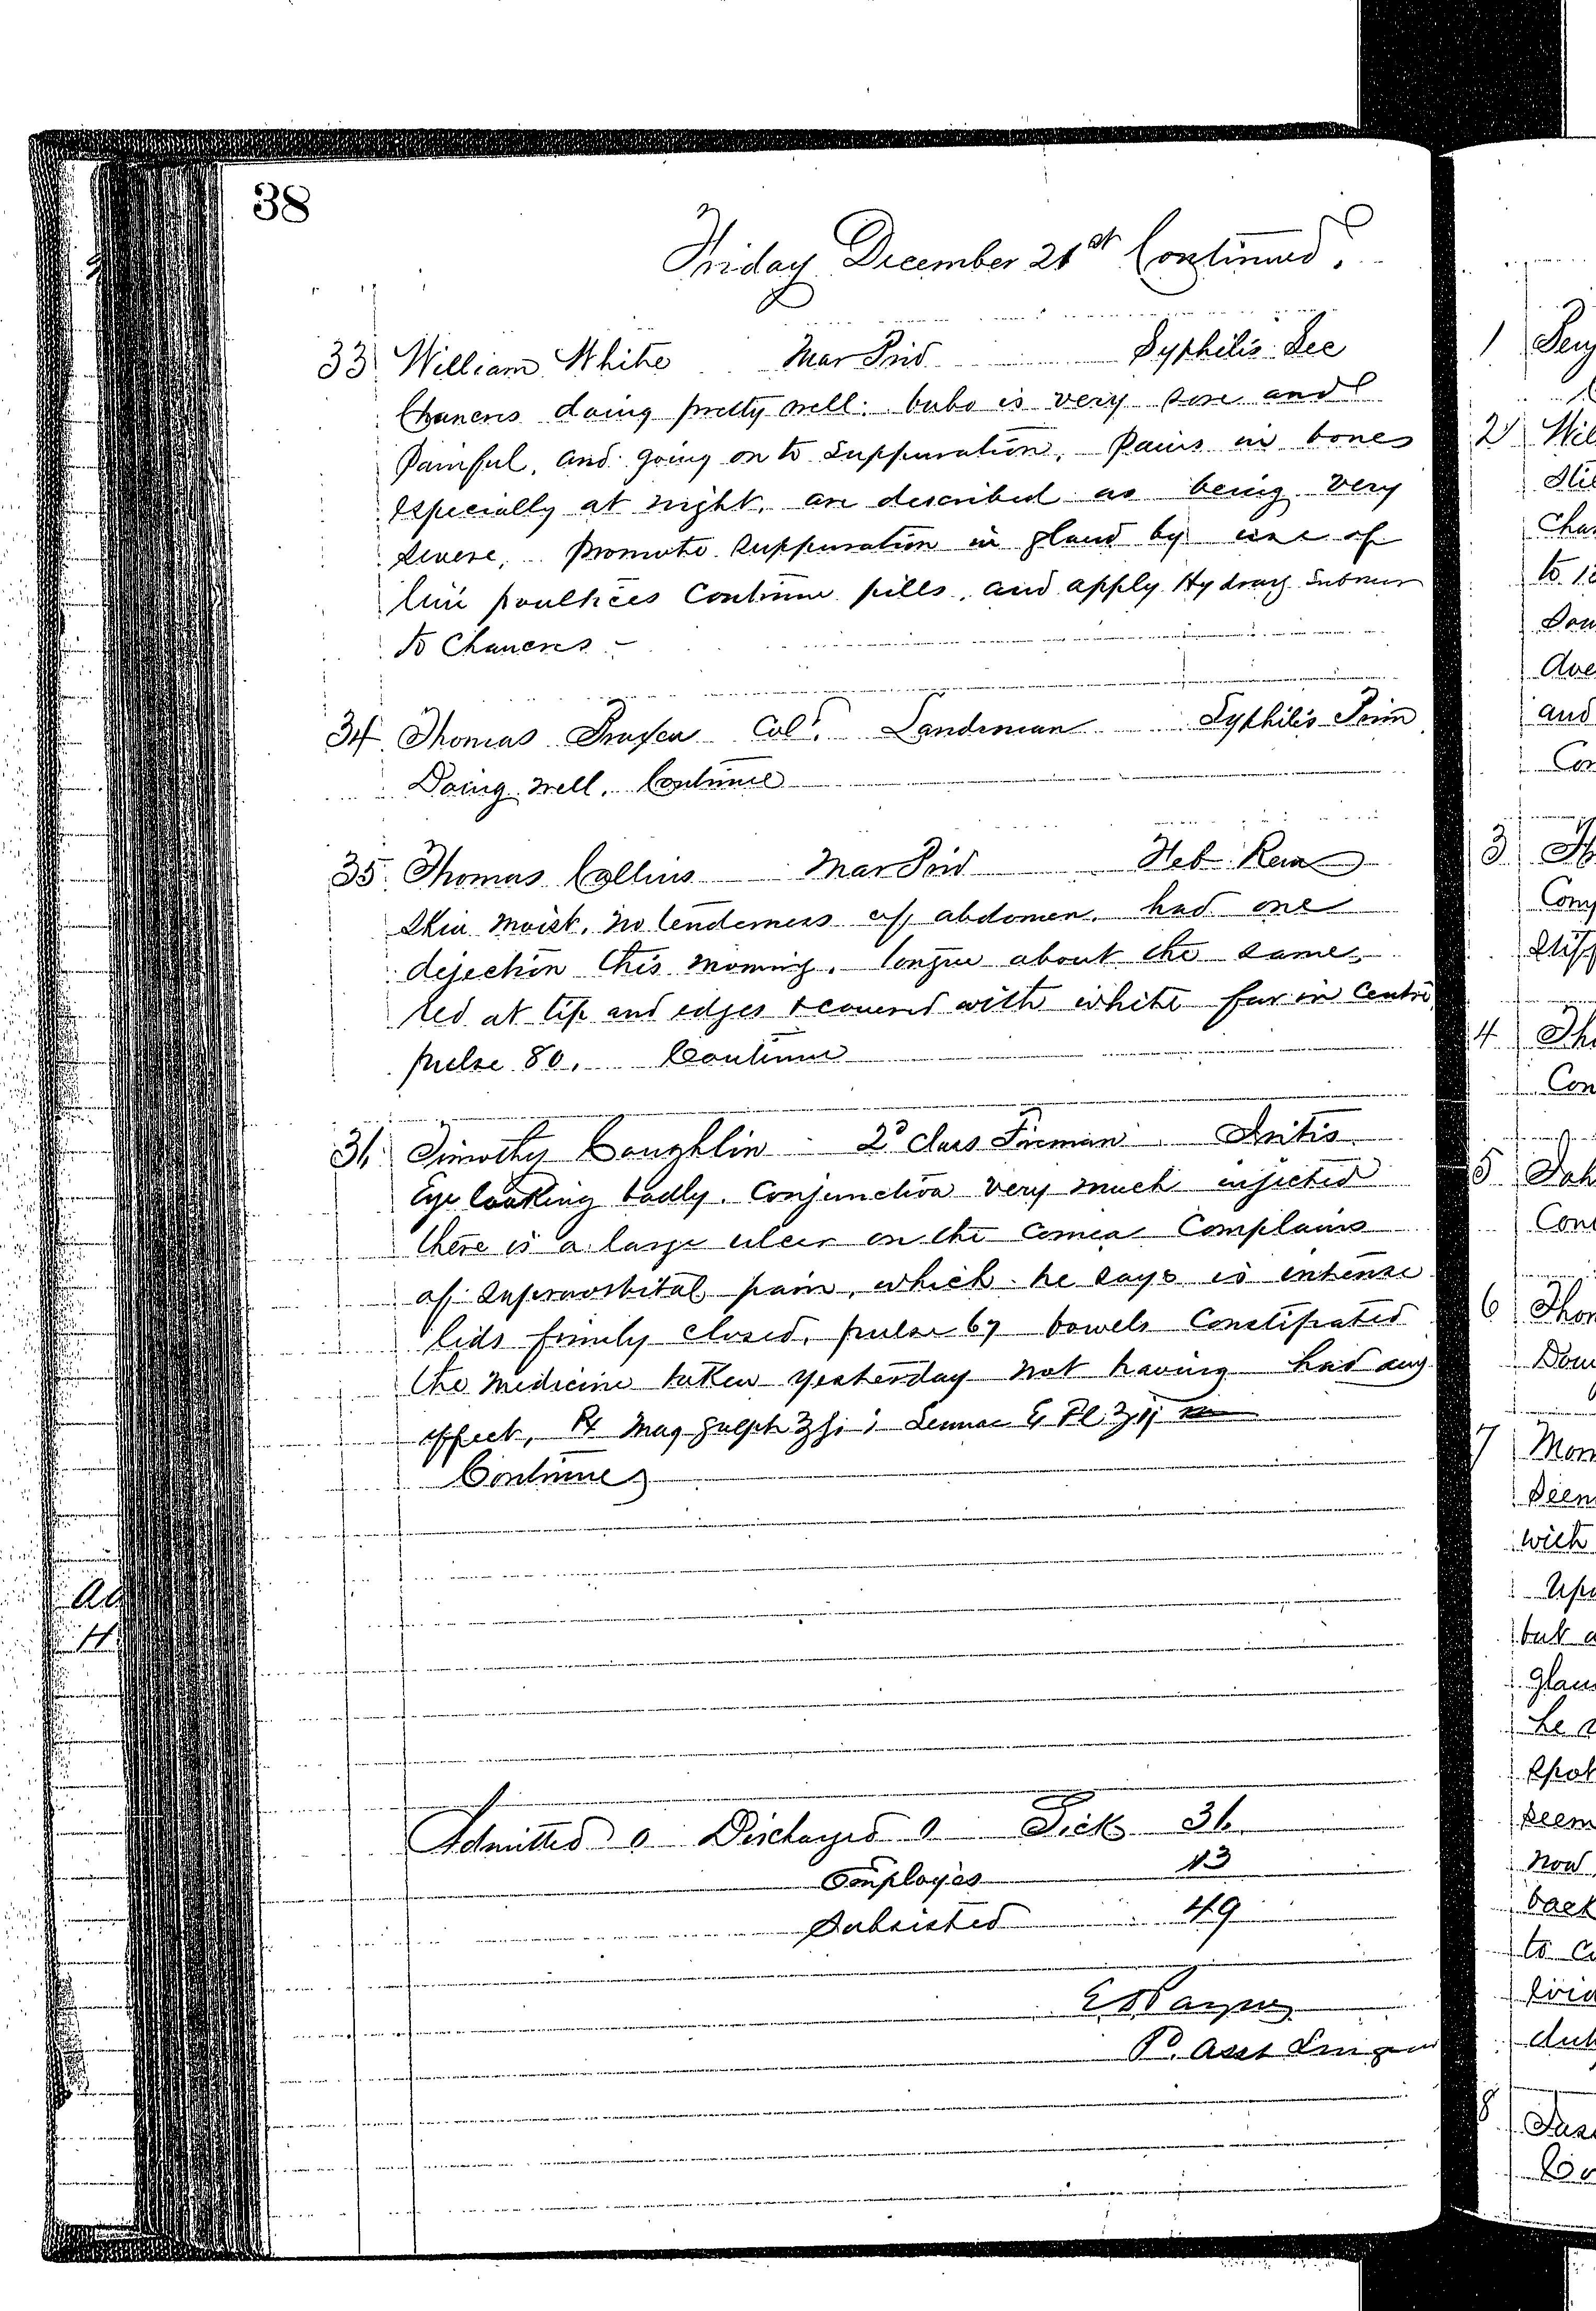 38
Friday December 21st Continued.
33 William White Mar Prid Syphilis Sec
Chancres doing pretty well. bubo is very sore and
painful, and going on to suppuration. Pains in bones
especially at night, are described as being very
severe. Promote suppuration in gland by use of
lini poultices Continue pills, and apply Hydrarg Submur
to Chancres –
34 Thomas Cold. Landsman Syphilis Prim
Doing well. Continue
35 Thomas Collins Mar Prid Feb Rem
Skin moist, no tenderness of abdomen. had one
dejection this morning. tongue about the same,
red at tip and edges & covered with white fur in centre
pulse 80. Continue
36 Timothy Coughlin 2d Class Fireman Iritis
Eye looking badly. Conjunctiva very much injected
there is a large ulcer on the cornea Complains
of supraorbital pain, which he says is intense
lids firmly closed, pulse 67 bowels Constipated
the medicine taken yesterday not having had any
effect, Rx Mag Sulph ℥ji Sennae Ex Fl ℥ij
Continue
Admitted 0 Discharged 0 Sick 36
Employes 13
Subsisted 49
P. Asst Surgeon
1
2 Wil
to
and
3
Com
4 Tho
Con
5 Joh
6 Thor
7
with
but a
now
back
8